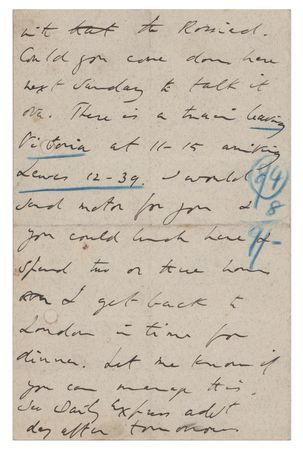 with that the Rossied.
Could you come down here
next Sunday to talk it
over. There is a train leaving
Victoria at 11-15 arriving
Lewes 12-39. I would
send motor for you &
you could lunch here &
spend two or three hours
& get back to
London in time for
dinner. Let me know if
you can manage this.
See Daily Express advt
day after tomorrow